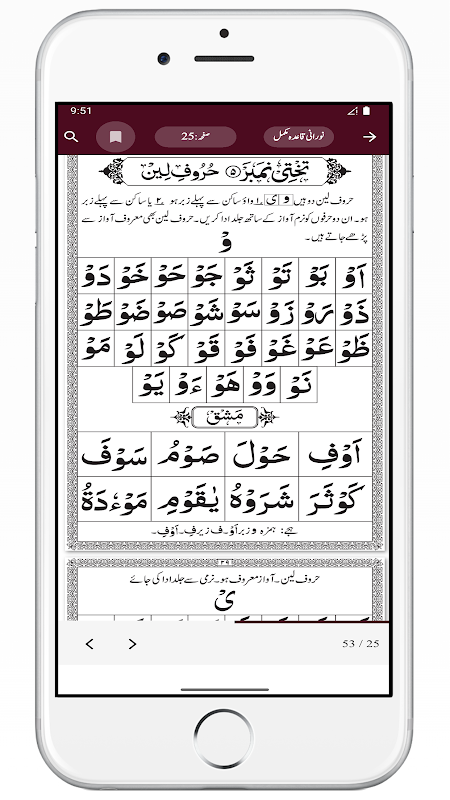 9:51
نورانی قاعدہ مکمل صفحہ:25
تختی نمبر ۵ حُروفِ لین
حروف لین دو ہیں و ی ۱۔ واؤ ساکن سے پہلے زبر ہو ۲۔ یا ساکن سے پہلے زبر
ہو۔ ان دو حرفوں کو نرم آواز کے ساتھ جلد ادا کریں۔ حروف لین بھی معروف آواز سے
پڑھے جاتے ہیں۔
وْ
اَوْ بَوْ تَوْ ثَوْ جَوْ حَوْ خَوْ دَوْ
ذَوْ رَوْ زَوْ سَوْ شَوْ صَوْ ضَوْ طَوْ
ظَوْ عَوْ غَوْ فَوْ قَوْ كَوْ لَوْ مَوْ
نَوْ وَوْ هَوْ ءَوْ يَوْ
مشق
اَوْفِ حَوْلَ صَوْمُ سَوْفَ
كَوْثَرَ شَرَوْهُ يٰقَوْمِ مَوْءٗدَةُ
ہجے: ہمزہ و زبر اَوْ۔ ف زیر فِ۔ اَوْفِ۔
۳۹
حروف لین۔ آواز معروف ہو۔ نرمی سے جلد ادا کی جائے
یْ
53 / 25